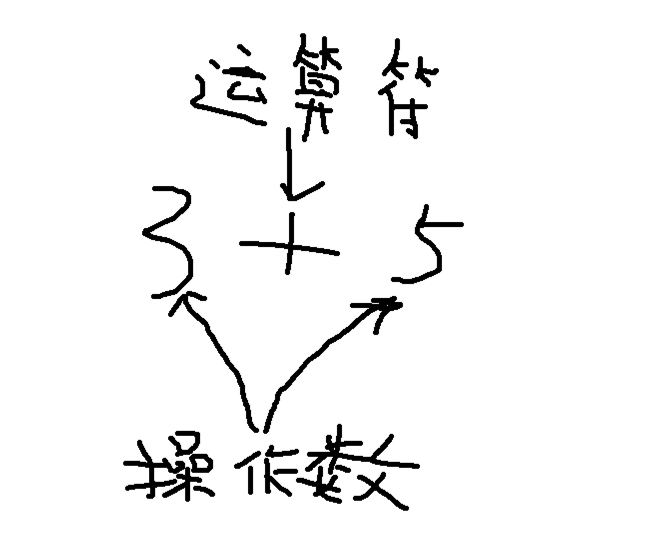 运算符
3 + 5
操作数